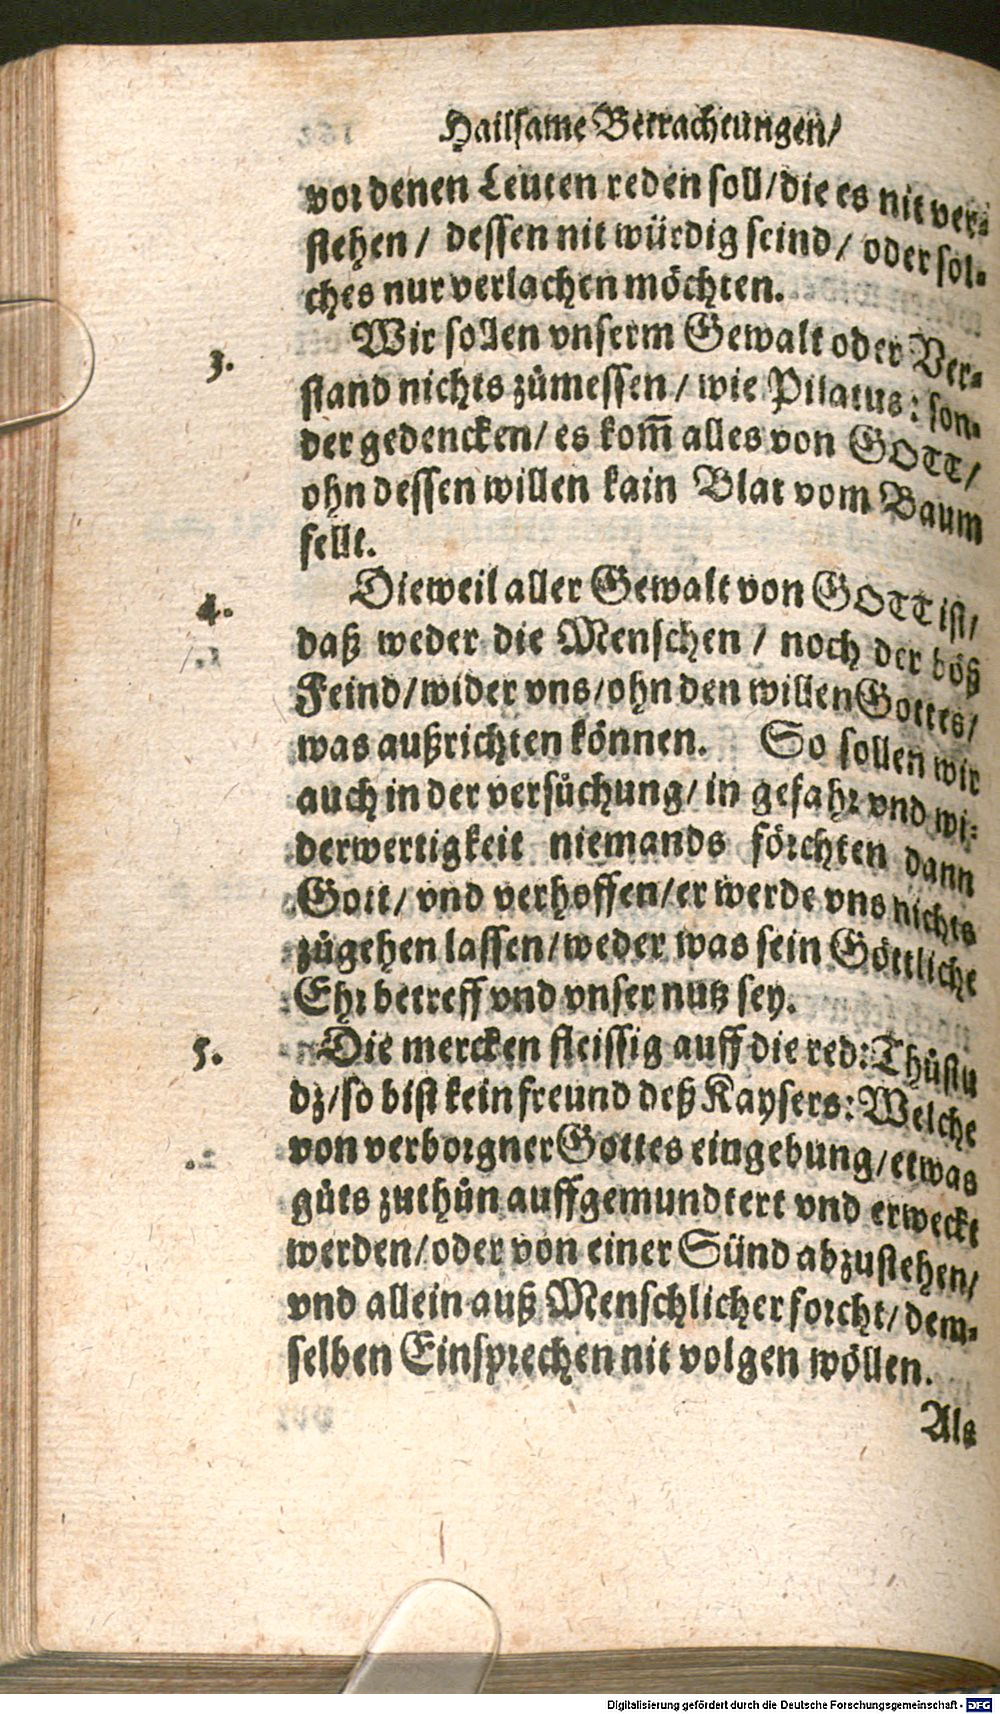 Hailsame Betrachtungen/
vor denen Leuten reden soll/die es nit ver-
stehen/ dessen nit würdig seind/ oder sol-
ches nur verlachen möchten.
3. Wir sollen vnserm Gewalt oder Ver-
stand nichts zůmessen/ wie Pilatus: son-
der gedencken/ es kom̃ alles von GOTT/
ohn dessen willen kain Blat vom Baum
fellt.
4. Dieweil aller Gewalt von GOTT ist/
daß weder die Menschen/ noch der böß
Feind/wider vns/ohn den willen Gottes/
was außrichten können. So sollen wir
auch in der versůchung/ in gefahr vnd wi-
derwertigkeit niemands förchten dann
Gott/ vnd verhoffen/er werde vns nichts
zůgehen lassen/weder was sein Göttliche
Ehr betreff vnd vnser nutz sey.
5. Die mercken fleissig auff die red: Thůstu
dz/so bist kein freund deß Kaysers: Welche
von verborgner Gottes eingebung/etwas
gůts zuthůn auffgemundtert vnd erweckt
werden/oder von einer Sünd abzustehen/
vnd allein auß Menschlicher forcht/ dem-
selben Einsprechen nit volgen wöllen.
Als
Digitalisierung gefördert durch die Deutsche Forschungsgemeinschaft - DFG